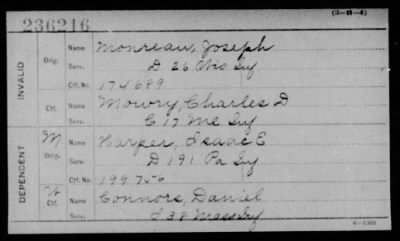 (3-11-4)
236216
INVALID
Orig. Name Monreau, Joseph
Serv. D 26 Ohio Inf
Ctf. No. 174689
Ctf. Name Mowry, Charles D
Serv. C 17 Me Inf
DEPENDENT
M Orig. Name Harper, Isaac E
Serv. D 191 Pa Inf
Ctf. No. 199756
W Ctf. Name Connors, Daniel
Serv. I 38 Mass Inf